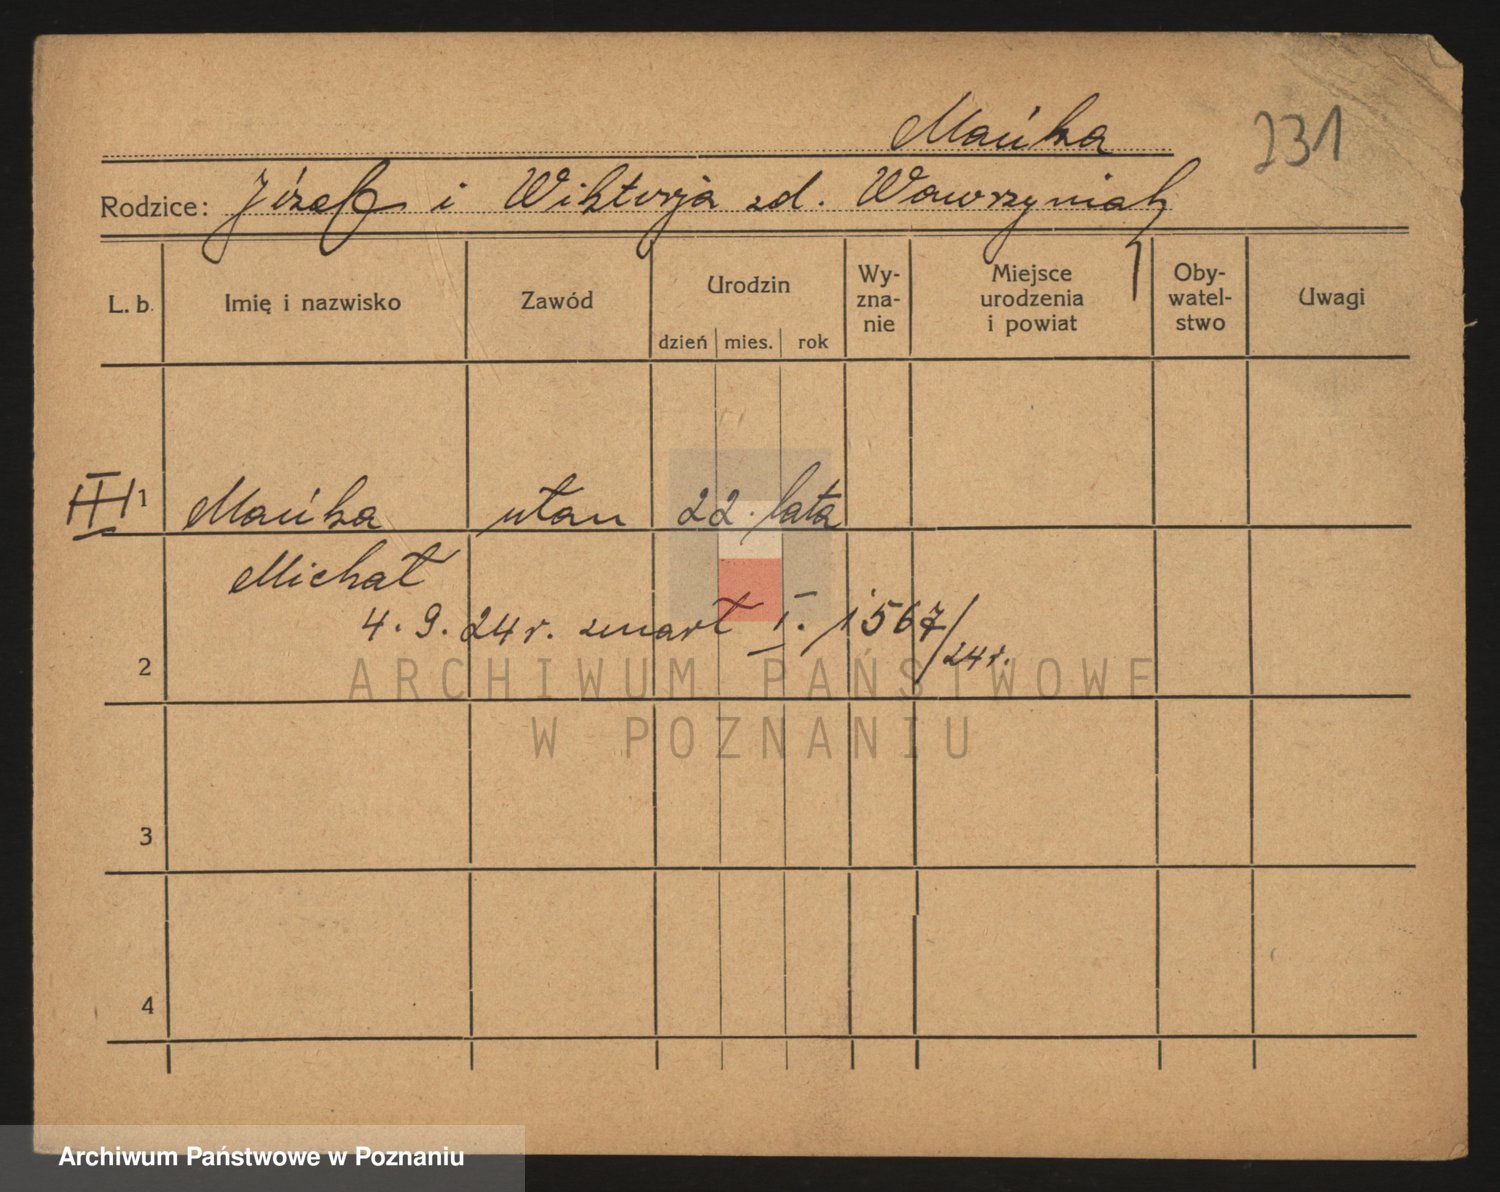 Mańka
231
Rodzice: Józef i Wiktorja zd. Wawrzyniak
L. b. Imię i nazwisko Zawód Urodzin Wy-zna-nie Miejsce urodzenia i powiat Oby-watel-stwo Uwagi
dzień mies. rok
III 1 Mańka ułan 22. lata
Michał
4. 9. 24 r. zmarł I. 1567/24 r.
2
ARCHIWUM PAŃSTWOWE
W POZNANIU
3
4
Archiwum Państwowe w Poznaniu